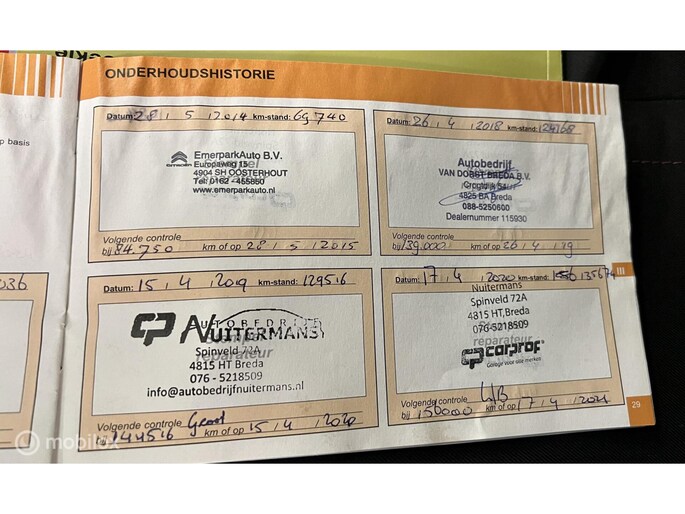 ONDERHOUDSHISTORIE
p basis
Datum: 28 / 5 / 2014 km-stand: 69 740
EmerparkAuto B.V.
CITROËN Europaweg 15
4904 SH OOSTERHOUT
Tel: 0162 - 455850
www.emerparkauto.nl
Volgende controle
bij 84.750 km of op 28 / 5 / 2015
Datum: 26 / 4 / 2018 km-stand:
Autobedrijf
VAN DORST BREDA B.V.
4825 BA Breda
088-5250600
Dealernummer 115930
Volgende controle
bij 139.000 km of op 26 / 4 / 19
036
Datum: 15 / 4 / 2019 km-stand: 129516
AUTOBEDRIJF
CP NUITERMANS
reparateur
Spinveld 72A
4815 HT Breda
076 - 5218509
info@autobedrijfnuitermans.nl
Volgende controle Groot
bij 144516 km of op 15 / 4 / 2020
Datum: 17 / 4 / 2020 km-stand: 135674
Nuitermans
Spinveld 72A
4815 HT, Breda
076-5218509
reparateur
CP carprof
Garage voor alle merken
Volgende controle
bij 150000 km of op 17 / 4 / 2021
29
mobilox